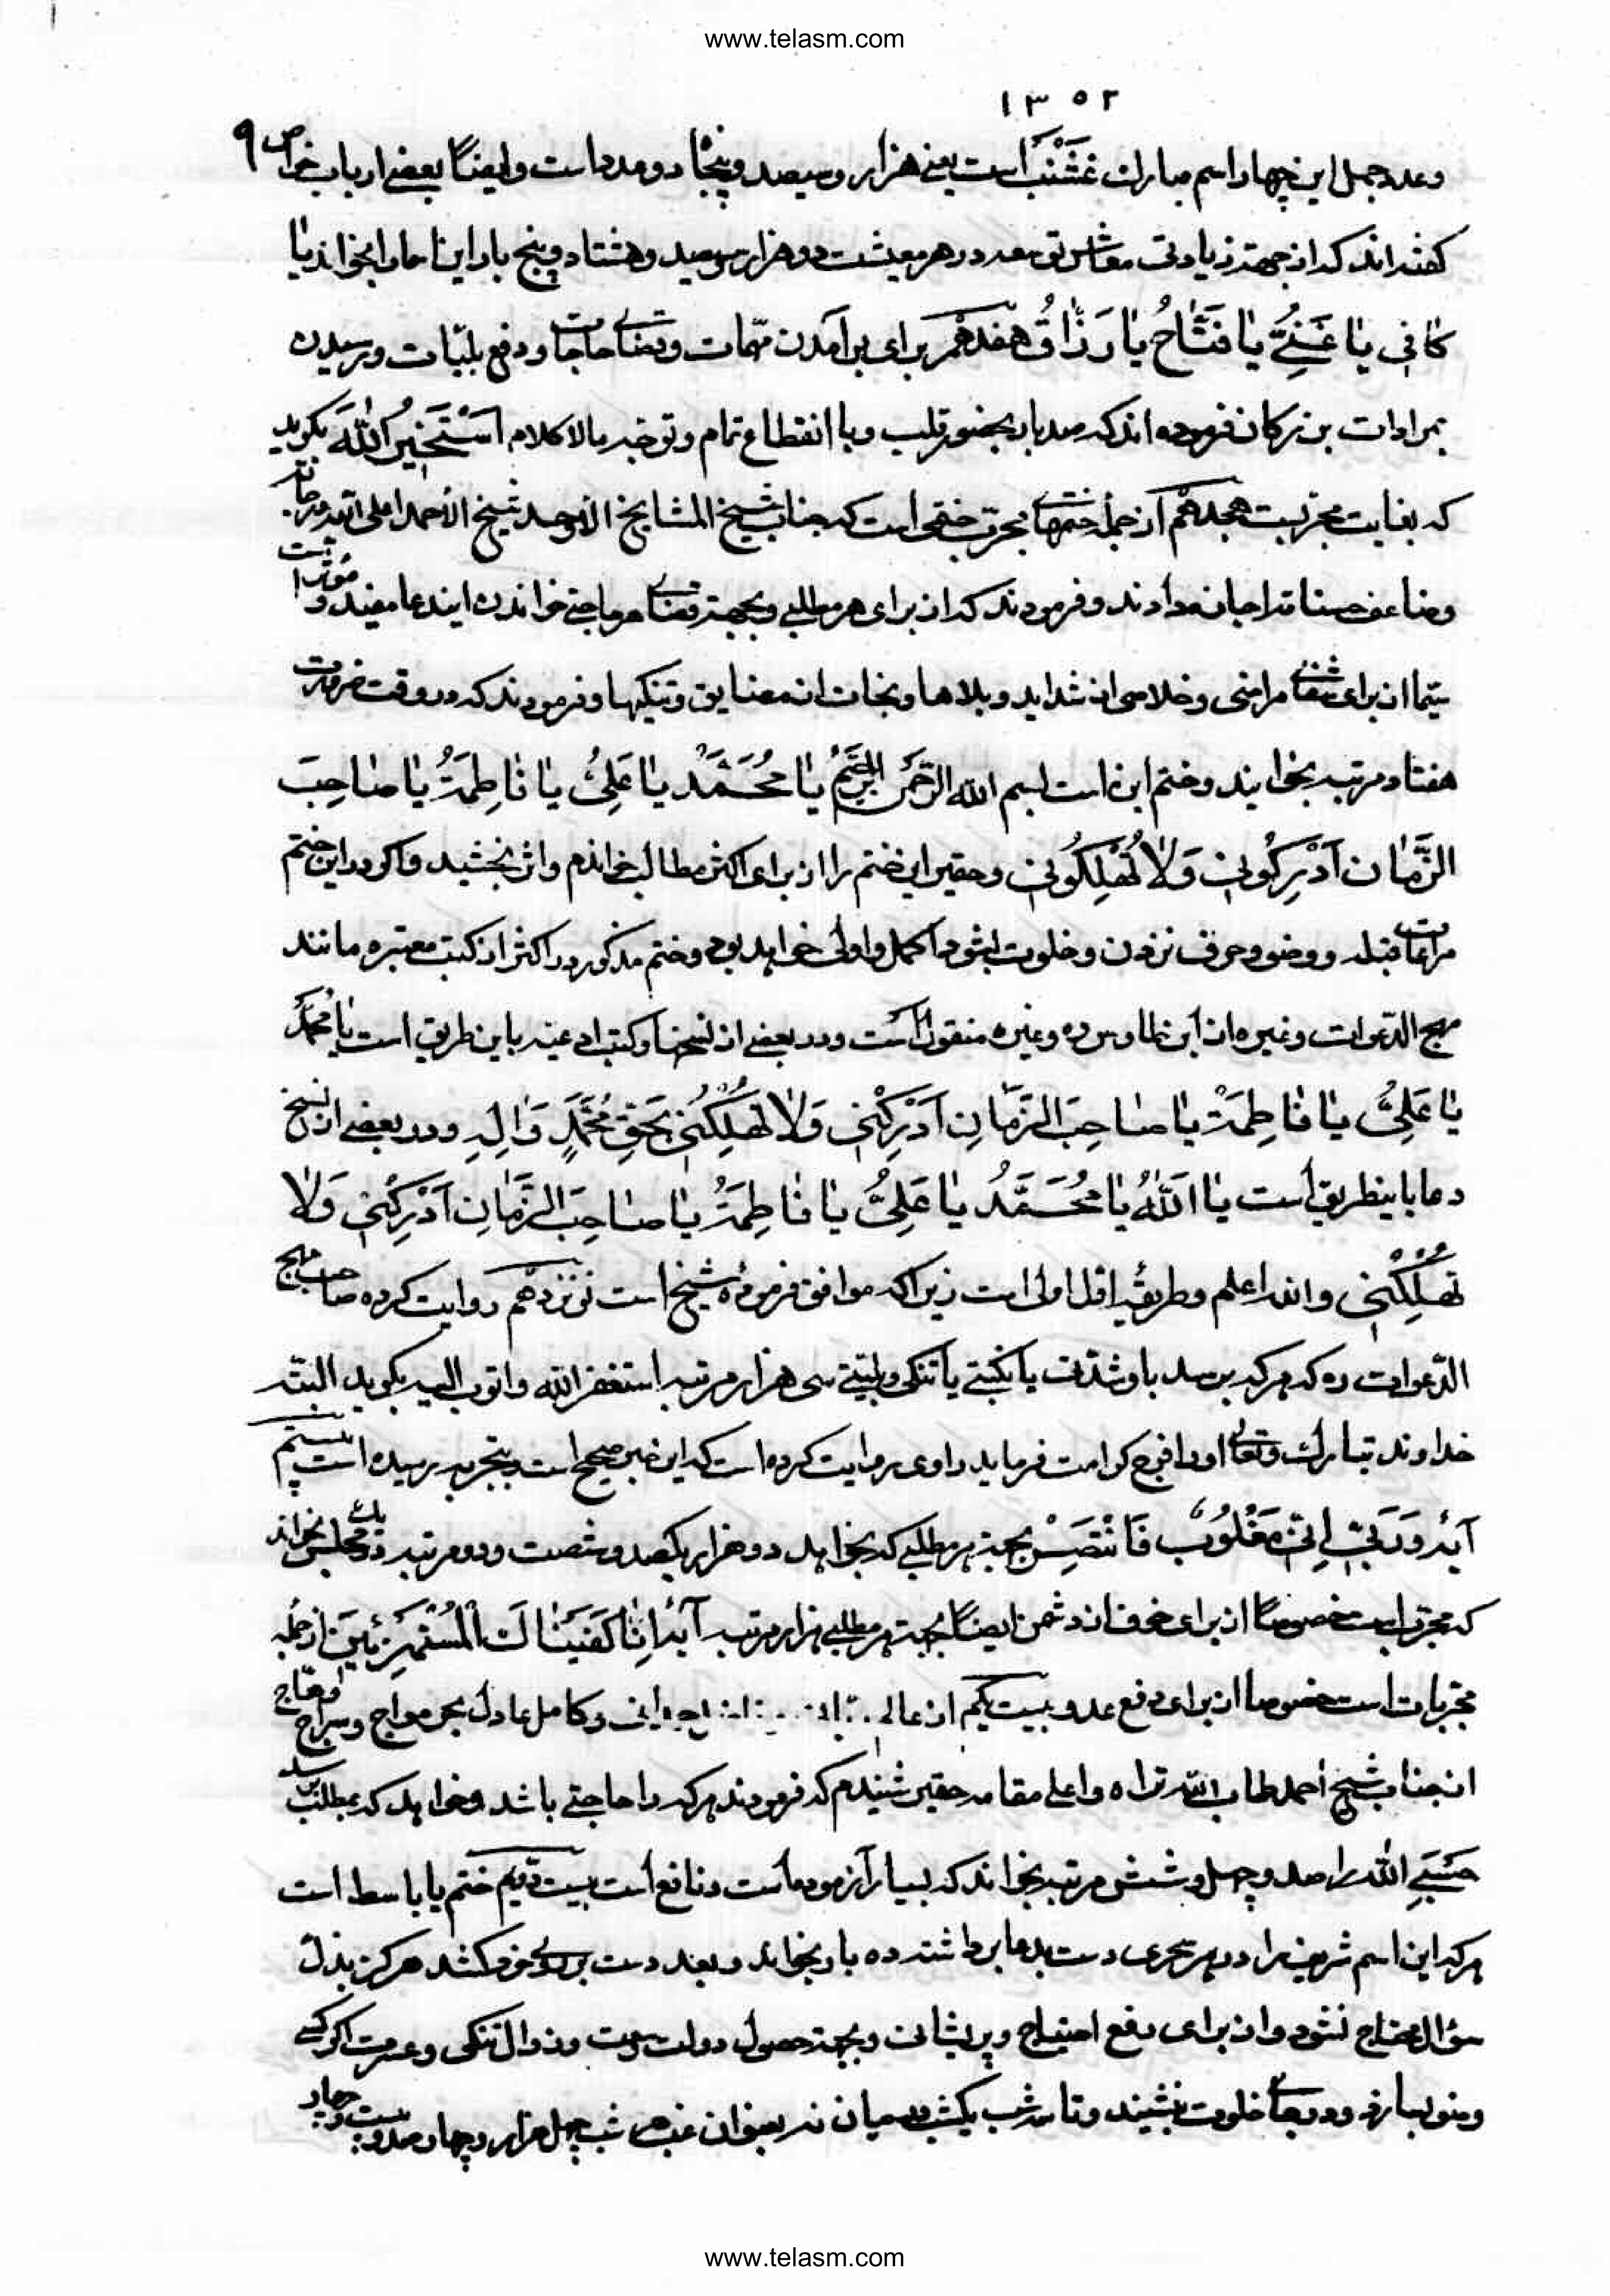 www.telasm.com
۱۳۵۲
وعدد جمل این چهار اسم مبارک غشنب است یعنی هزار و سیصد و پنجاه دو عدد است و ایضاً بعضی ارباب خواص ۹
گفته‌اند که از جهة زیادتی معاش و توسعه در هر معیشت دو هزار و سیصد و هشتاد و پنج بار این اسماء را بخواند یا
کافی یا غَنِیُّ یا فَتّاحُ یا رَزّاقُ هفدهم برای برآمدن مهمات و قضای حاجات و دفع بلیّات و رسیدن
بمرادات بزرکان فرموده‌اند که صد بار بحضور قلب و با انقطاع تمام و توجه مالا کلام اَسْتَخیرُ اللهَ بکوید
که بغایت مجربست هجدهم از جمله ختمهای مجرب ختمی است که جناب شیخ المشایخ الاوحد شیخ الأحمد اعلی الله درجاته
وضاعف حسناته اجازه دادند و فرمودند که از برای هر مطلبی و بجهة قضای هر حاجتی خواندن ایندعا مفید و مؤثر است
سیّما از برای شفای مرض و خلاصی از شداید و بلاها و نجات از مضایق و تنکیها و فرمودند که در وقت ضرورت
هفتاد مرتبه بخوانید و ختم این است بسم الله الرحمن الرحیم یا مُحَمَّدُ یا عَلِیُّ یا فاطِمَةُ یا صاحِبَ
الزَّمانِ اَدْرِکُونی وَلا تُهْلِکُونی و حقیر این ختم را از برای اکثر مطالب خواندم و اثر بخشید و اکر در این ختم
مراعات قبله و وضو و حرف نزدن و خلوت بشود اکمل و اولی خواهد بود و ختم مذکور در اکثر از کتب معتبره مانند
مهج الدعوات و غیره از ابن طاوس ره و غیره منقول است و در بعضی از نسخها و کتب ادعیه باین طریق است یا مُحَمَّدُ
یا عَلِیُّ یا فاطِمَةُ یا صاحِبَ الزَّمانِ اَدْرِکْنی وَلا تُهْلِکْنی بِحَقِّ مُحَمَّدٍ وَآلِهِ و در بعضی از نسخ
دعا باینطریق است یا اَللهُ یا مُحَمَّدُ یا عَلِیُّ یا فاطِمَةُ یا صاحِبَ الزَّمانِ اَدْرِکْنی وَلا
تُهْلِکْنی والله اعلم و طریقهٔ اول اولی است زیرا که موافق فرمودهٔ شیخ است نوزدهم روایت کرده صاحب مهج
الدعوات ره که هر که برسد باو شدّت یا نکبتی یا تنکی و بلیّتی سی هزار مرتبه استغفر الله و اتوب الیه بکوید البته
خداوند تبارک و تعالی او را فرج کرامت فرماید راوی روایت کرده است که این خبر صحیح است و بتجربه رسیده است بیستم
آیهٔ وَ رَبِّ اِنّی مَغْلُوبٌ فَانْتَصِرْ بجهة هر مطلبی که بخواهد دو هزار یکصد و شصت و دو مرتبه در یک مجلس بخواند
که مجرب است خصوصاً از برای خوف از دشمن ایضاً بجهة هر مطلبی هزار مرتبه آیهٔ اِنّا کَفَیْناکَ الْمُسْتَهْزِئینَ از جمله
مجربات است خصوصاً از برای دفع عدو بیست یکم از عالم و کامل عادل بحر مواج و سراج وهّاج
از جناب شیخ احمد طاب الله ثراه و اعلی مقامه حقیر شنیدم که فرمودند هر که را حاجتی باشد و خواهد که بمطلب برسد
حَسْبِیَ الله را صد و چهل و شش مرتبه بخواند که بسیار آزموده است و نافع است بیست دویم ختم یا باسط است
هر که این اسم شریف را در هر سحری دست بدعا برداشته ده بار بخواند و بعد دست بر روی خود کشد هرکز بذلّ
سؤال محتاج نشود و از برای دفع احتیاج و پریشانی و بجهة حصول دولت و زوال تنکی و عسرت اکر کسی
وضو بسازد و در جای خلوت بنشیند و تا سه شب یکشب در میان نه بعنوان هر شب چهل هزار و چهار صد و بیست و چهار
www.telasm.com